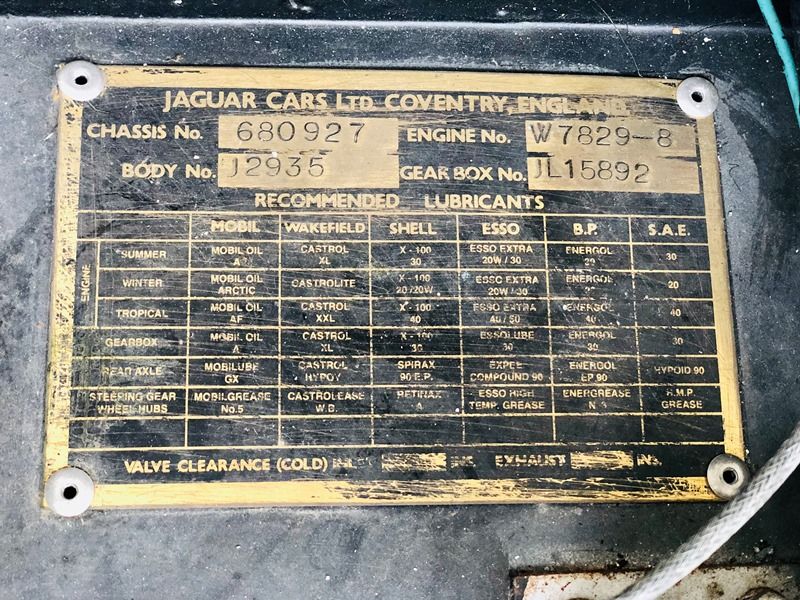 JAGUAR CARS LTD. COVENTRY, ENGLAND.
CHASSIS No. 680927 ENGINE No. W7829-8
BODY No. J2935 GEAR BOX No. JL15892
RECOMMENDED LUBRICANTS
MOBIL WAKEFIELD SHELL ESSO B.P. S.A.E.
ENGINE
SUMMER MOBIL OIL A CASTROL XL X-100 30 ESSO EXTRA 20W/30 ENERGOL 30
WINTER MOBIL OIL ARCTIC CASTROLITE X-100 20/20W ESSO EXTRA 20W/30 ENERGOL 20
TROPICAL MOBIL OIL AF CASTROL XXL X-100 40 ESSO EXTRA 40/50 ENERGOL 40
GEARBOX MOBIL OIL A CASTROL XL X-100 30 ESSOLUBE 30 ENERGOL 30 30
REAR AXLE MOBILUBE GX CASTROL HYPOY SPIRAX 90 E.P. EXPEE COMPOUND 90 ENERGOL EP 90 HYPOID 90
STEERING GEAR WHEEL HUBS MOBILGREASE No.5 CASTROLEASE W.B. RETINAX A ESSO HIGH TEMP. GREASE ENERGREASE H.M.P. GREASE
VALVE CLEARANCE (COLD) INLET INS. EXHAUST INS.